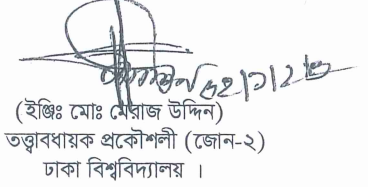 (ইঞ্জিঃ মোঃ মেরাজ উদ্দিন)
তত্ত্বাবধায়ক প্রকৌশলী (জোন-২)
ঢাকা বিশ্ববিদ্যালয় ।